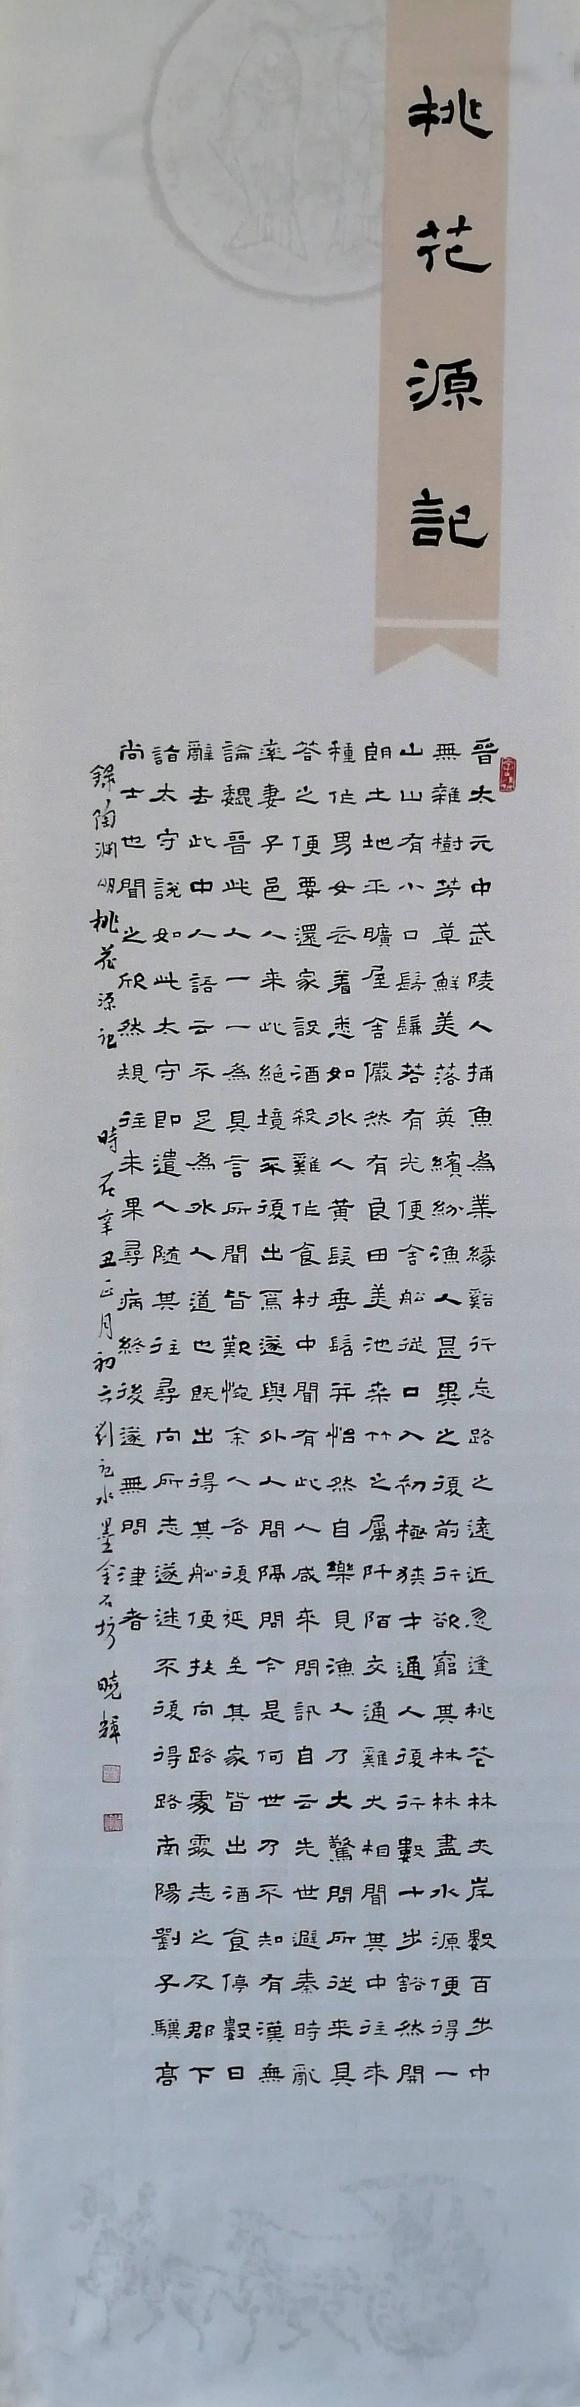 桃花源記
晉太元中武陵人捕魚為業緣谿行忘路之遠近忽逢桃花林夾岸數百步中
無雜樹芳草鮮美落英繽紛漁人甚異之復前行欲窮其林林盡水源便得一
山山有小口髣髴若有光便舍船從口入初極狹才通人復行數十步豁然開
朗土地平曠屋舍儼然有良田美池桑竹之屬阡陌交通雞犬相聞其中往來
種作男女衣着悉如外人黃髮垂髫并怡然自樂見漁人乃大驚問所從來具
答之便要還家設酒殺雞作食村中聞有此人咸來問訊自云先世避秦時亂
率妻子邑人來此絕境不復出焉遂與外人間隔問今是何世乃不知有漢無
論魏晉此人一一為具言所聞皆歎惋余人各復延至其家皆出酒食停數日
辭去此中人語云不足為外人道也既出得其船便扶向路處處志之及郡下
詣太守說如此太守即遣人隨其往尋向所志遂迷不復得路南陽劉子驥高
尚士也聞之欣然規往未果尋病終後遂無問津者
錄陶淵明桃花源記 時在辛丑正月初六劉水墨金石坊 曉輝